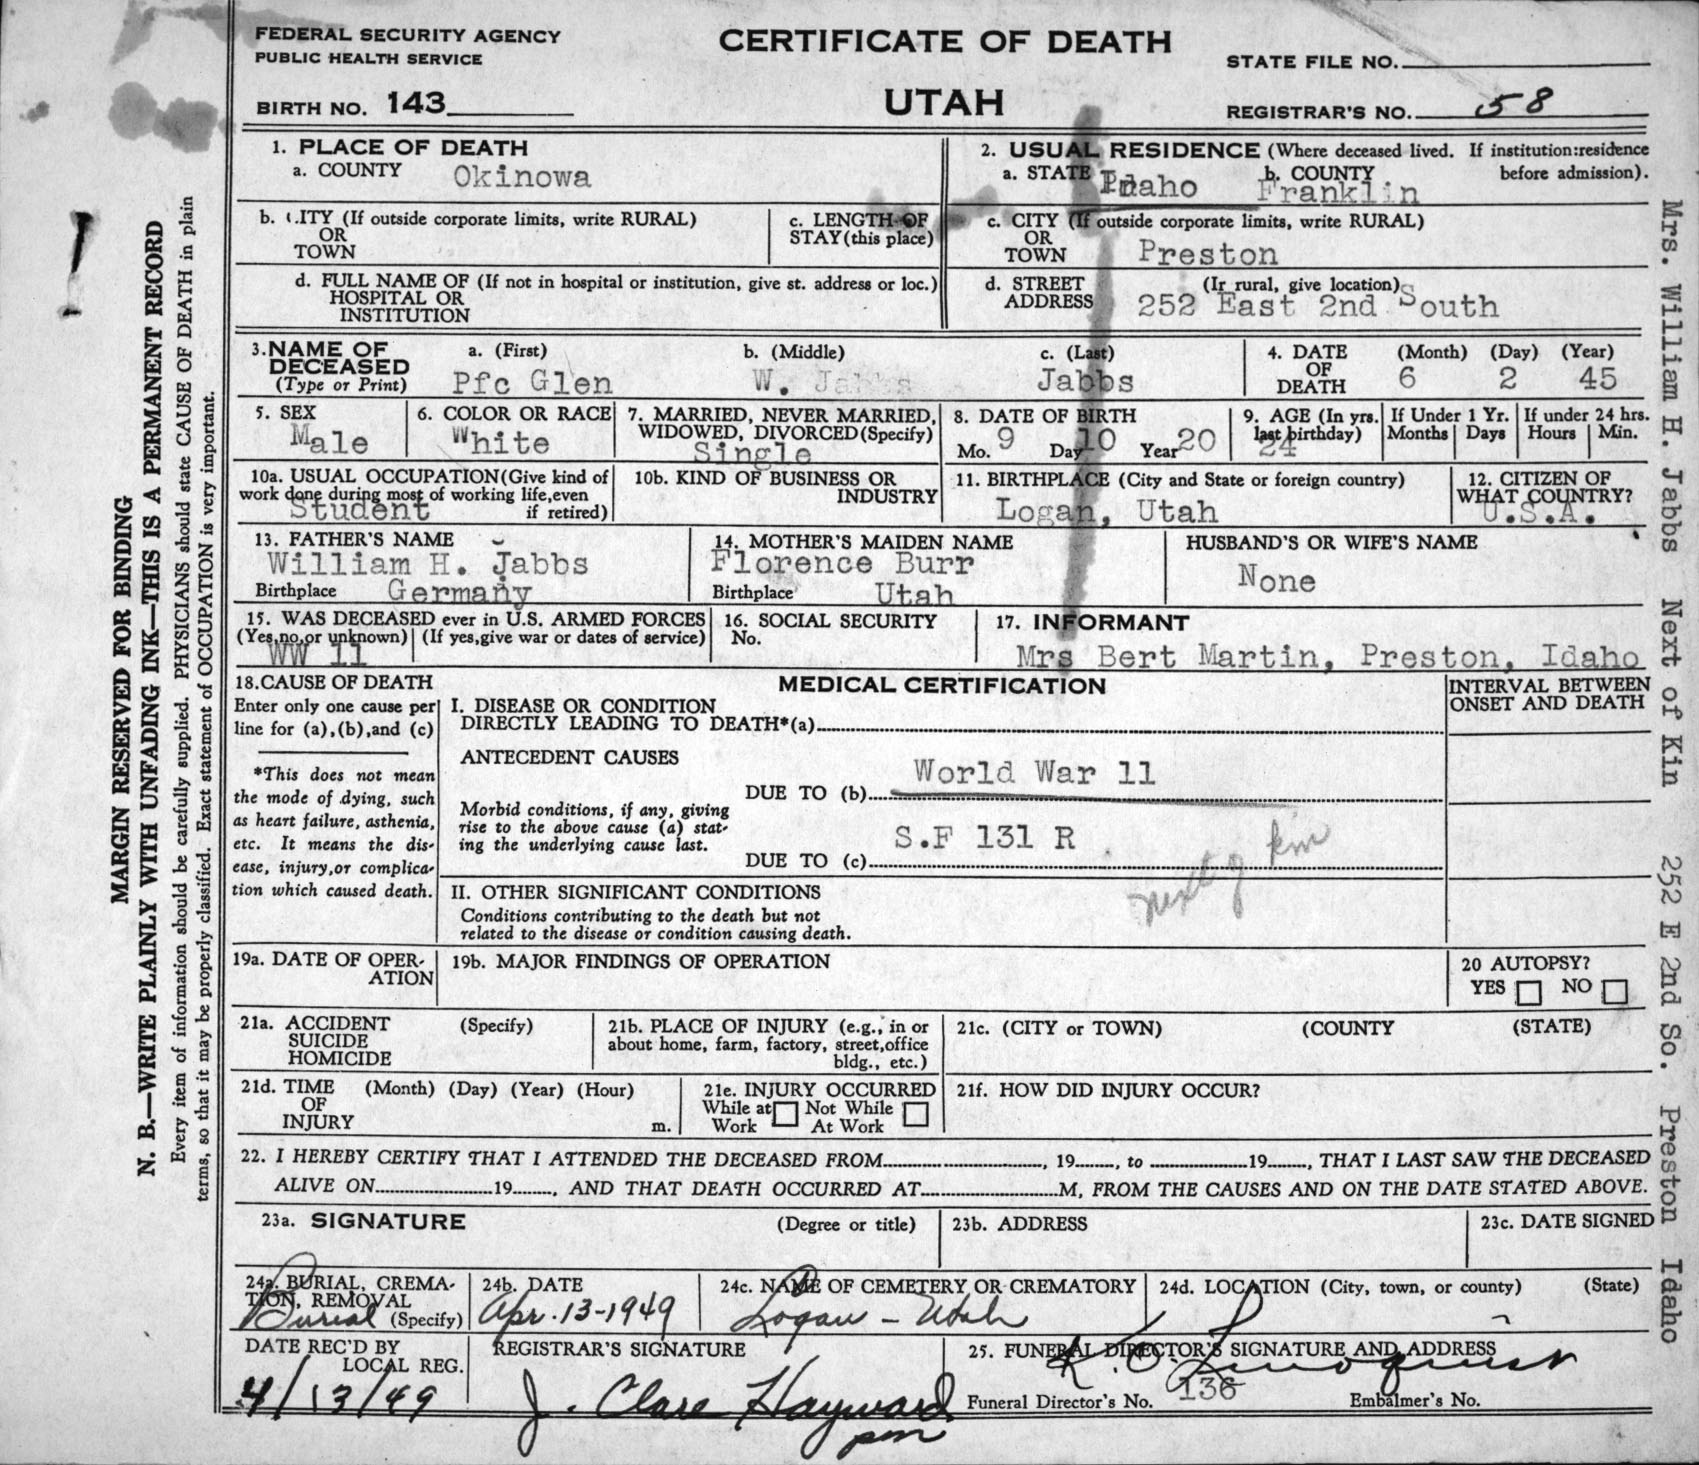 FEDERAL SECURITY AGENCY
PUBLIC HEALTH SERVICE
BIRTH NO. 143
CERTIFICATE OF DEATH
UTAH
STATE FILE NO.
REGISTRAR'S NO. 58
1. PLACE OF DEATH
a. COUNTY Okinowa
b. CITY (If outside corporate limits, write RURAL)
OR
TOWN
c. LENGTH OF
STAY (this place)
d. FULL NAME OF (If not in hospital or institution, give st. address or loc.)
HOSPITAL OR
INSTITUTION
2. USUAL RESIDENCE (Where deceased lived. If institution:residence
before admission).
a. STATE Idaho b. COUNTY Franklin
c. CITY (If outside corporate limits, write RURAL)
OR
TOWN Preston
d. STREET (If rural, give location)
ADDRESS 252 East 2nd South
3. NAME OF
DECEASED
(Type or Print)
a. (First) Pfc Glen
b. (Middle) W.
c. (Last) Jabbs
4. DATE
OF
DEATH
(Month) (Day) (Year)
6 2 45
5. SEX
Male
6. COLOR OR RACE
White
7. MARRIED, NEVER MARRIED,
WIDOWED, DIVORCED (Specify)
Single
8. DATE OF BIRTH
Mo. 9 Day 10 Year 20
9. AGE (In yrs.
last birthday)
24
If Under 1 Yr.
Months Days
If under 24 hrs.
Hours Min.
10a. USUAL OCCUPATION (Give kind of
work done during most of working life, even
if retired)
Student
10b. KIND OF BUSINESS OR
INDUSTRY
11. BIRTHPLACE (City and State or foreign country)
Logan, Utah
12. CITIZEN OF
WHAT COUNTRY?
U.S.A.
13. FATHER'S NAME
William H. Jabbs
Birthplace Germany
14. MOTHER'S MAIDEN NAME
Florence Burr
Birthplace Utah
HUSBAND'S OR WIFE'S NAME
None
15. WAS DECEASED ever in U.S. ARMED FORCES
(Yes,no,or unknown) (If yes,give war or dates of service)
WW 11
16. SOCIAL SECURITY
No.
17. INFORMANT
Mrs Bert Martin, Preston, Idaho
18. CAUSE OF DEATH
Enter only one cause per
line for (a),(b),and (c)
*This does not mean
the mode of dying, such
as heart failure, asthenia,
etc. It means the dis-
ease, injury,or complica-
tion which caused death.
MEDICAL CERTIFICATION
INTERVAL BETWEEN
ONSET AND DEATH
I. DISEASE OR CONDITION
DIRECTLY LEADING TO DEATH*(a)
ANTECEDENT CAUSES
World War 11
DUE TO (b)
Morbid conditions, if any, giving
rise to the above cause (a) stat-
ing the underlying cause last.
S.F 131 R
DUE TO (c)
next of kin
II. OTHER SIGNIFICANT CONDITIONS
Conditions contributing to the death but not
related to the disease or condition causing death.
19a. DATE OF OPER-
ATION
19b. MAJOR FINDINGS OF OPERATION
20 AUTOPSY?
YES NO
21a. ACCIDENT (Specify)
SUICIDE
HOMICIDE
21b. PLACE OF INJURY (e.g., in or
about home, farm, factory, street,office
bldg., etc.)
21c. (CITY or TOWN) (COUNTY (STATE)
21d. TIME (Month) (Day) (Year) (Hour)
OF
INJURY m.
21e. INJURY OCCURRED
While at Not While
Work At Work
21f. HOW DID INJURY OCCUR?
22. I HEREBY CERTIFY THAT I ATTENDED THE DECEASED FROM , 19 , to 19 , THAT I LAST SAW THE DECEASED
ALIVE ON 19 , AND THAT DEATH OCCURRED AT M, FROM THE CAUSES AND ON THE DATE STATED ABOVE.
23a. SIGNATURE (Degree or title)
23b. ADDRESS
23c. DATE SIGNED
24a. BURIAL, CREMA-
TION, REMOVAL
Burial (Specify)
24b. DATE
Apr. 13-1949
24c. NAME OF CEMETERY OR CREMATORY
Logan - Utah
24d. LOCATION (City, town, or county) (State)
DATE REC'D BY
LOCAL REG.
4/13/49
REGISTRAR'S SIGNATURE
J. Clare Hayward
pm
25. FUNERAL DIRECTOR'S SIGNATURE AND ADDRESS
Funeral Director's No. 136 Embalmer's No.
MARGIN RESERVED FOR BINDING
N. B.—WRITE PLAINLY WITH UNFADING INK—THIS IS A PERMANENT RECORD
Every item of information should be carefully supplied. PHYSICIANS should state CAUSE OF DEATH in plain
terms, so that it may be properly classified. Exact statement of OCCUPATION is very important.
Mrs. William H. Jabbs Next of Kin 252 E 2nd So. Preston Idaho